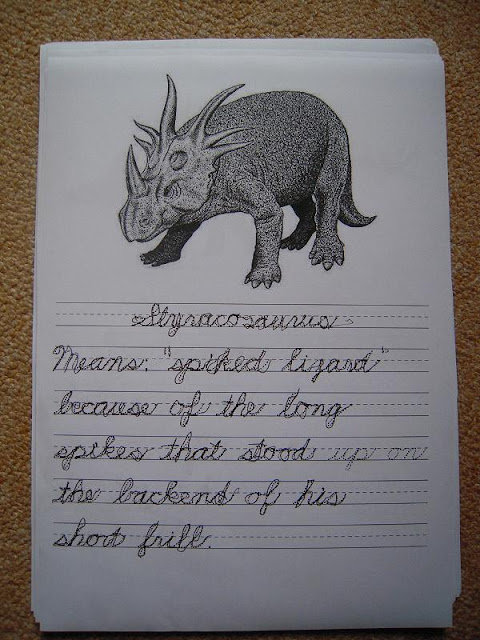 Styracosaurus
Means: "spiked lizard"
because of the long
spikes that stood up on
the backend of his
short frill.